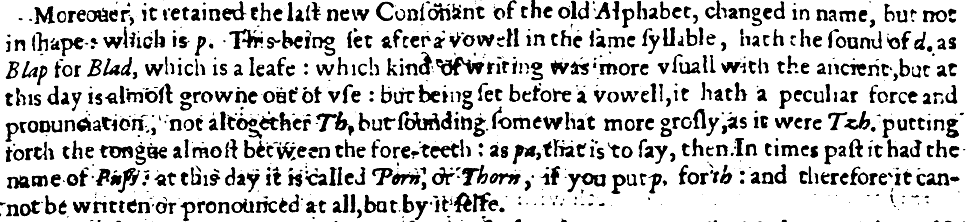 Moreouer, it retained the laſt new Conſonant of the old Alphabet, changed in name, but not
in ſhape: which is p. This being ſet after a vowell in the ſame ſyllable, hath the ſound of d. as
Blap for Blad, which is a leafe: which kind of writing was more vſuall with the ancient, but at
this day is almoſt growne out of vſe: but being ſet before a vowell, it hath a peculiar force and
pronunciation, not altogether Th, but ſounding ſomewhat more groſly, as it were Tzh. putting
forth the tongue almoſt between the fore-teeth: as pa, that is to ſay, then. In times paſt it had the
name of at this day it is called Porn, or Thorn, if you put p. for th: and therefore it can-
not be written or pronounced at all, but by it ſelfe.